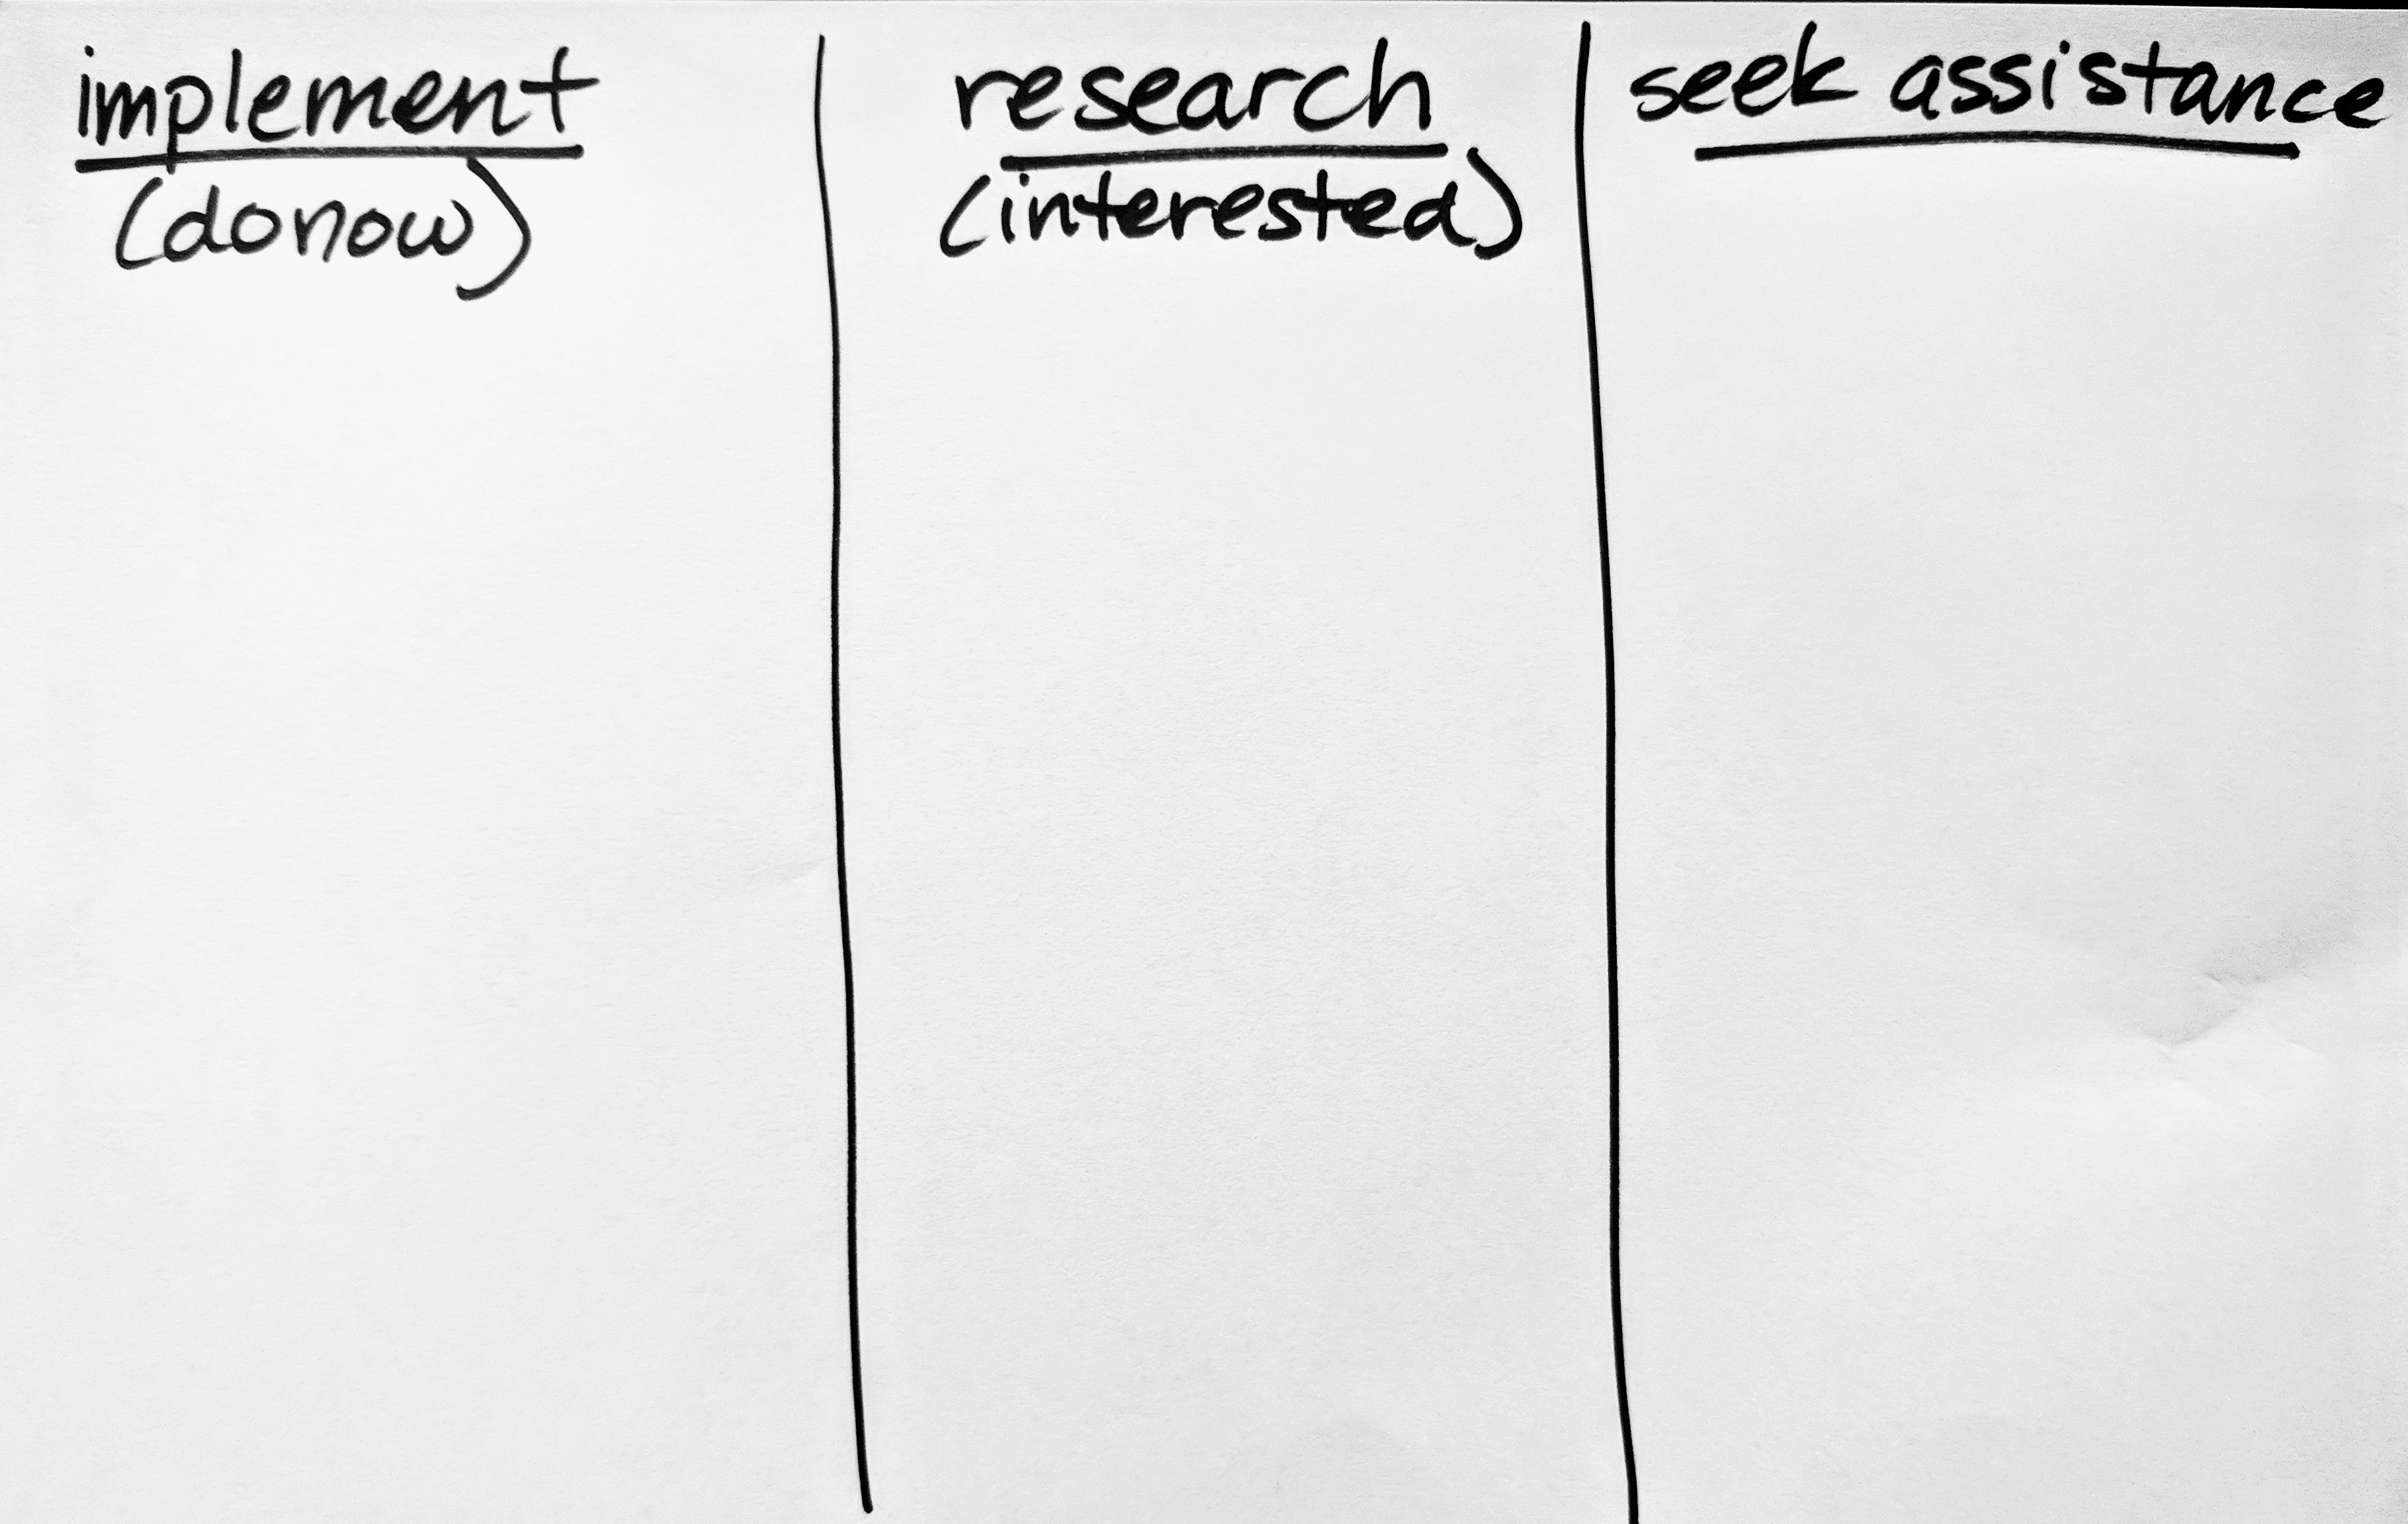 implement
(donow)
research
(interested)
seek assistance